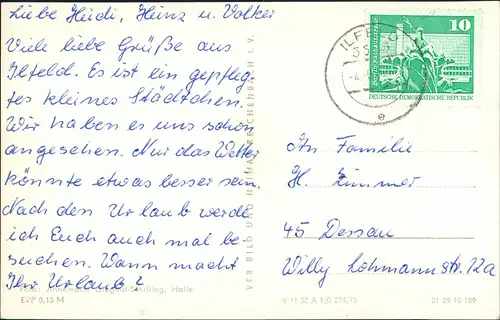 Liebe Heidi, Heinz u. Volker
Viele liebe Grüße aus
Ilfeld. Es ist ein gepfleg-
tes kleines Städtchen.
Wir haben es uns schon
angesehen. Nur das Wetter
könnte etwas besser sein.
Nach dem Urlaub werde
ich Euch auch mal be-
suchen. Wann macht
Ihr Urlaub?
Foto: Annemarie Giegold-Schilling, Halle
EVP 0,15 M
VEB BILD UND HEIMAT REICHENBACH I. V.
10
DEUTSCHE DEMOKRATISCHE REPUBLIK
ILFELD
e
An Familie
H. Zimmer
45 Dessau
Willy Lohmannstr. 12a
V 11 50 A 1/B 274/75
01 09 10 109